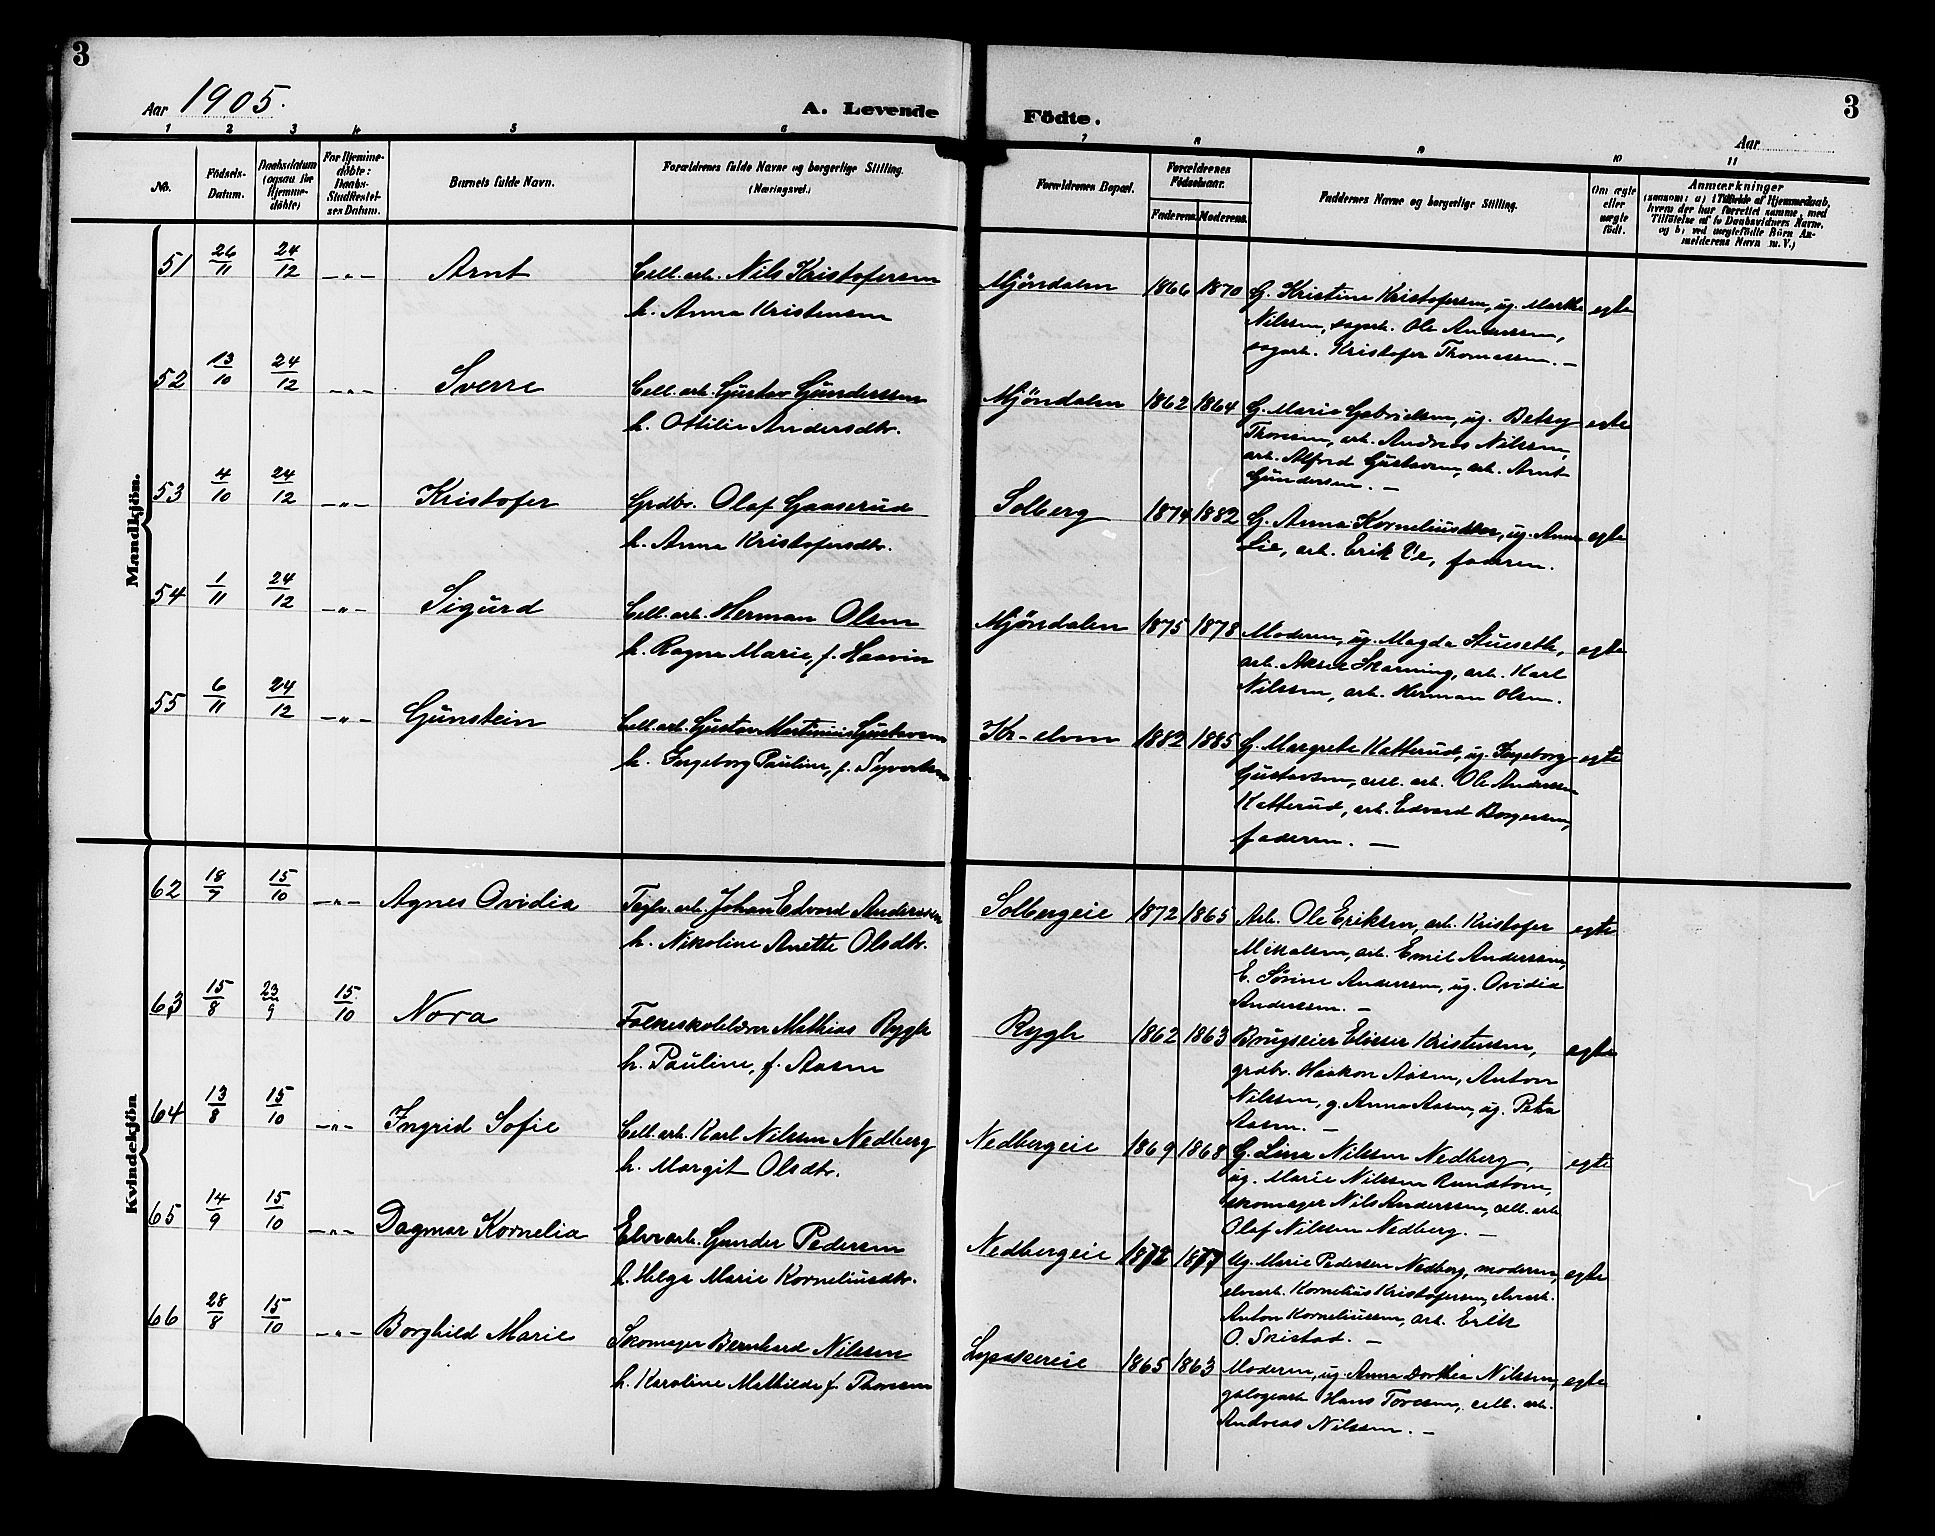 3
Aar 1905.
A. Levende
Födte.
Aar
3
1 2 3 4 5 6
7 8 9 10 11
No.
Födsels-
Datum.
Daabsdatum
(ogsaa for
Hjemme-
döbte)
For Hjemme-
döbte:
Daabs-
Stadfæstel-
ses Datum.
Barnets fulde Navn.
Forældrenes fulde Navne og borgerlige Stilling.
(Næringsvei.)
Forældrenes Bopæl.
Forældrenes
Födselsaar.
Faderens. Moderens.
Faddernes Navne og borgerlige Stilling.
Om ægte
eller
uægte
födt.
Anmærkninger
(saasom: a) i Tilfælde af Hjemmedaab,
hvem der har forrettet samme, med
Tilföielse af to Daabsvidners Navne,
og b) ved uægtefödte Börn An-
melderens Navn m. V.)
Mandkjön.
51 26/11 24/12 -"- Arnt Cell. arb. Nils Kristofersen
h. Anna Kristensen
Mjöndalen 1866 1870 G. Kristine Kristofersen, ug. Marthe egte
Nilssen, sagarb. Ole Anderssen,
sagarb. Kristofer Thomessen. -
52 13/10 24/12 -"- Sverre Cell. arb. Gustav Gunderssen
h. Ottilie Andersdtr.
Mjöndalen 1862 1864 G. Marie Gabrielsen, ug. Betsy egte
Thomsen, arb. Andreas Nilssen,
arb. Alfred Gustavsen, arb. Arnt
Gundersen. -
53 4/10 24/12 -"- Kristofer Grdbr. Olaf Gaaserud
h. Anna Kristofersdtr.
Solberg 1874 1882 G. Anna Korneliussen, ug. Anna egte
Lie, arb. Erik Ve, faderen.
54 1/11 24/12 -"- Sigurd Cell. arb. Herman Olsen
h. Ragna Marie, f. Haavin
Mjöndalen 1875 1878 Moderen, ug. Magda Stuseth, egte
arb. Aksel Skarning, arb. Karl
Nilssen, arb. Herman Olsen.
55 6/11 24/12 -"- Gunstein Cell. arb. Gustav Martinius Gustavsen
h. Ingeborg Pauline, f. Syvertsen
Kr-elven 1882 1885 G. Margrete Katterud, ug. Ingeborg egte
Gustavsen, cell. arb. Ole Anderssen
Katterud, arb. Edvard Borgersen,
faderen. -
Kvindekjön
62 18/7 15/10 -"- Agnes Ovidia Teglv. arb. Johan Edvard Anderssen
h. Nikoline Anette Olsdtr.
Solbergeie 1872 1865 Arb. Ole Eriksen, arb. Kristofer egte
Mikalsen, arb. Emil Anderssen,
E. Sörine Anderssen, ug. Ovidia
Anderssen. -
63 15/8 23/9 15/10 Nora Folkeskolelærer Mathias Rygh
h. Pauline, f. Aasen
Rygh 1862 1863 Brugseier Elieser Kristensen, egte
grdbr. Haakon Aasen, Anton
Nilssen, g. Anna Aasen, ug. Petra
Aasen. -
64 13/8 15/10 -"- Ingrid Sofie Cell. arb. Karl Nilssen Nedberg
h. Margit Olsdtr.
Nedbergeie 1869 1868 G. Lina Nilssen Nedberg, egte
ug. Marie Nilssen Rundtom,
skomager Nils Anderssen, cell. arb.
Olaf Nilssen Nedberg. -
65 14/9 15/10 -"- Dagmar Kornelia Elvearb. Gunder Pedersen
h. Helga Marie Korneliusdtr.
Nedbergeie 1872 1877 Ug. Marie Pedersen Nedberg, moderen, egte
elvearb. Kornelius Kristofersen, elvearb.
Anton Korneliussen, arb. Erik
O. Skistad. -
66 28/8 15/10 -"- Borghild Marie Skomager Bernhard Nilssen
h. Karoline Mathilde f. Thomsen
1865 1863 Moderen, ug. Anna Dorthea Nilssen, egte
Hans Toresen, cell. arb.
Andreas Nilssen. -